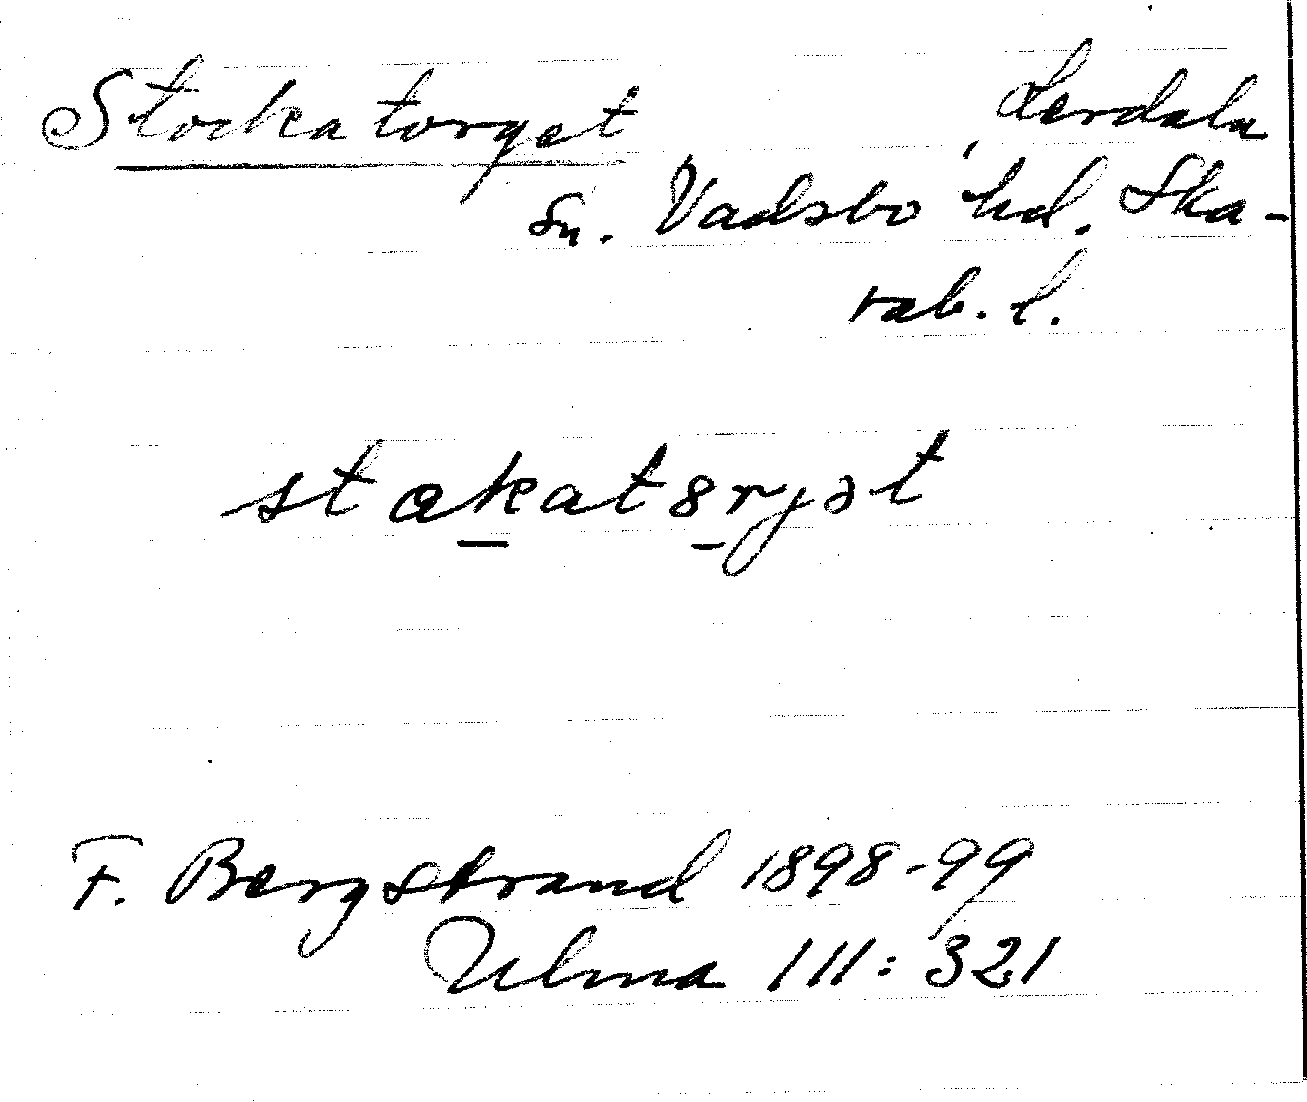 Stockatorget Lerdala
sn. Vadsbo hd. Ska-
rab. l.
stakat8rjət
F. Bergstrand 1898-99
Ulma 111: 321